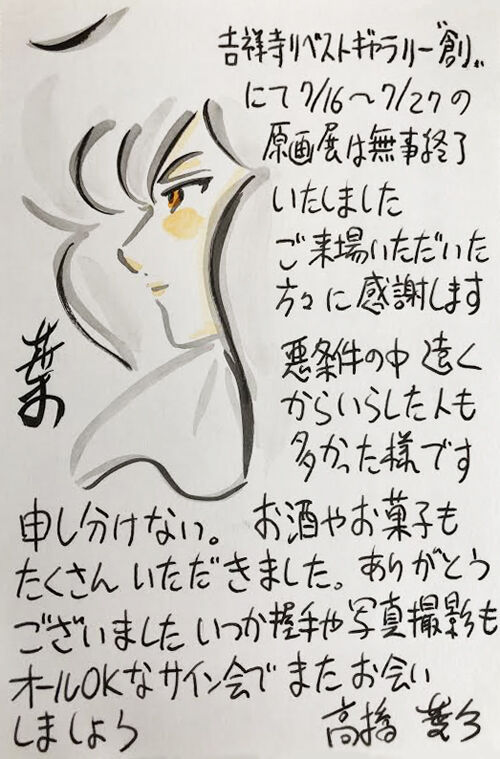 吉祥寺リベストギャラリー"創"
にて7/16〜7/27の
原画展は無事終了
いたしました
ご来場いただいた
方々に感謝します
悪条件の中 遠く
からいらした人も
多かった様です
申し分けない。 お酒やお菓子も
たくさん いただきました。ありがとう
ございました いつか握手や写真撮影も
オールOKなサイン会で また お会い
しましょう 高橋